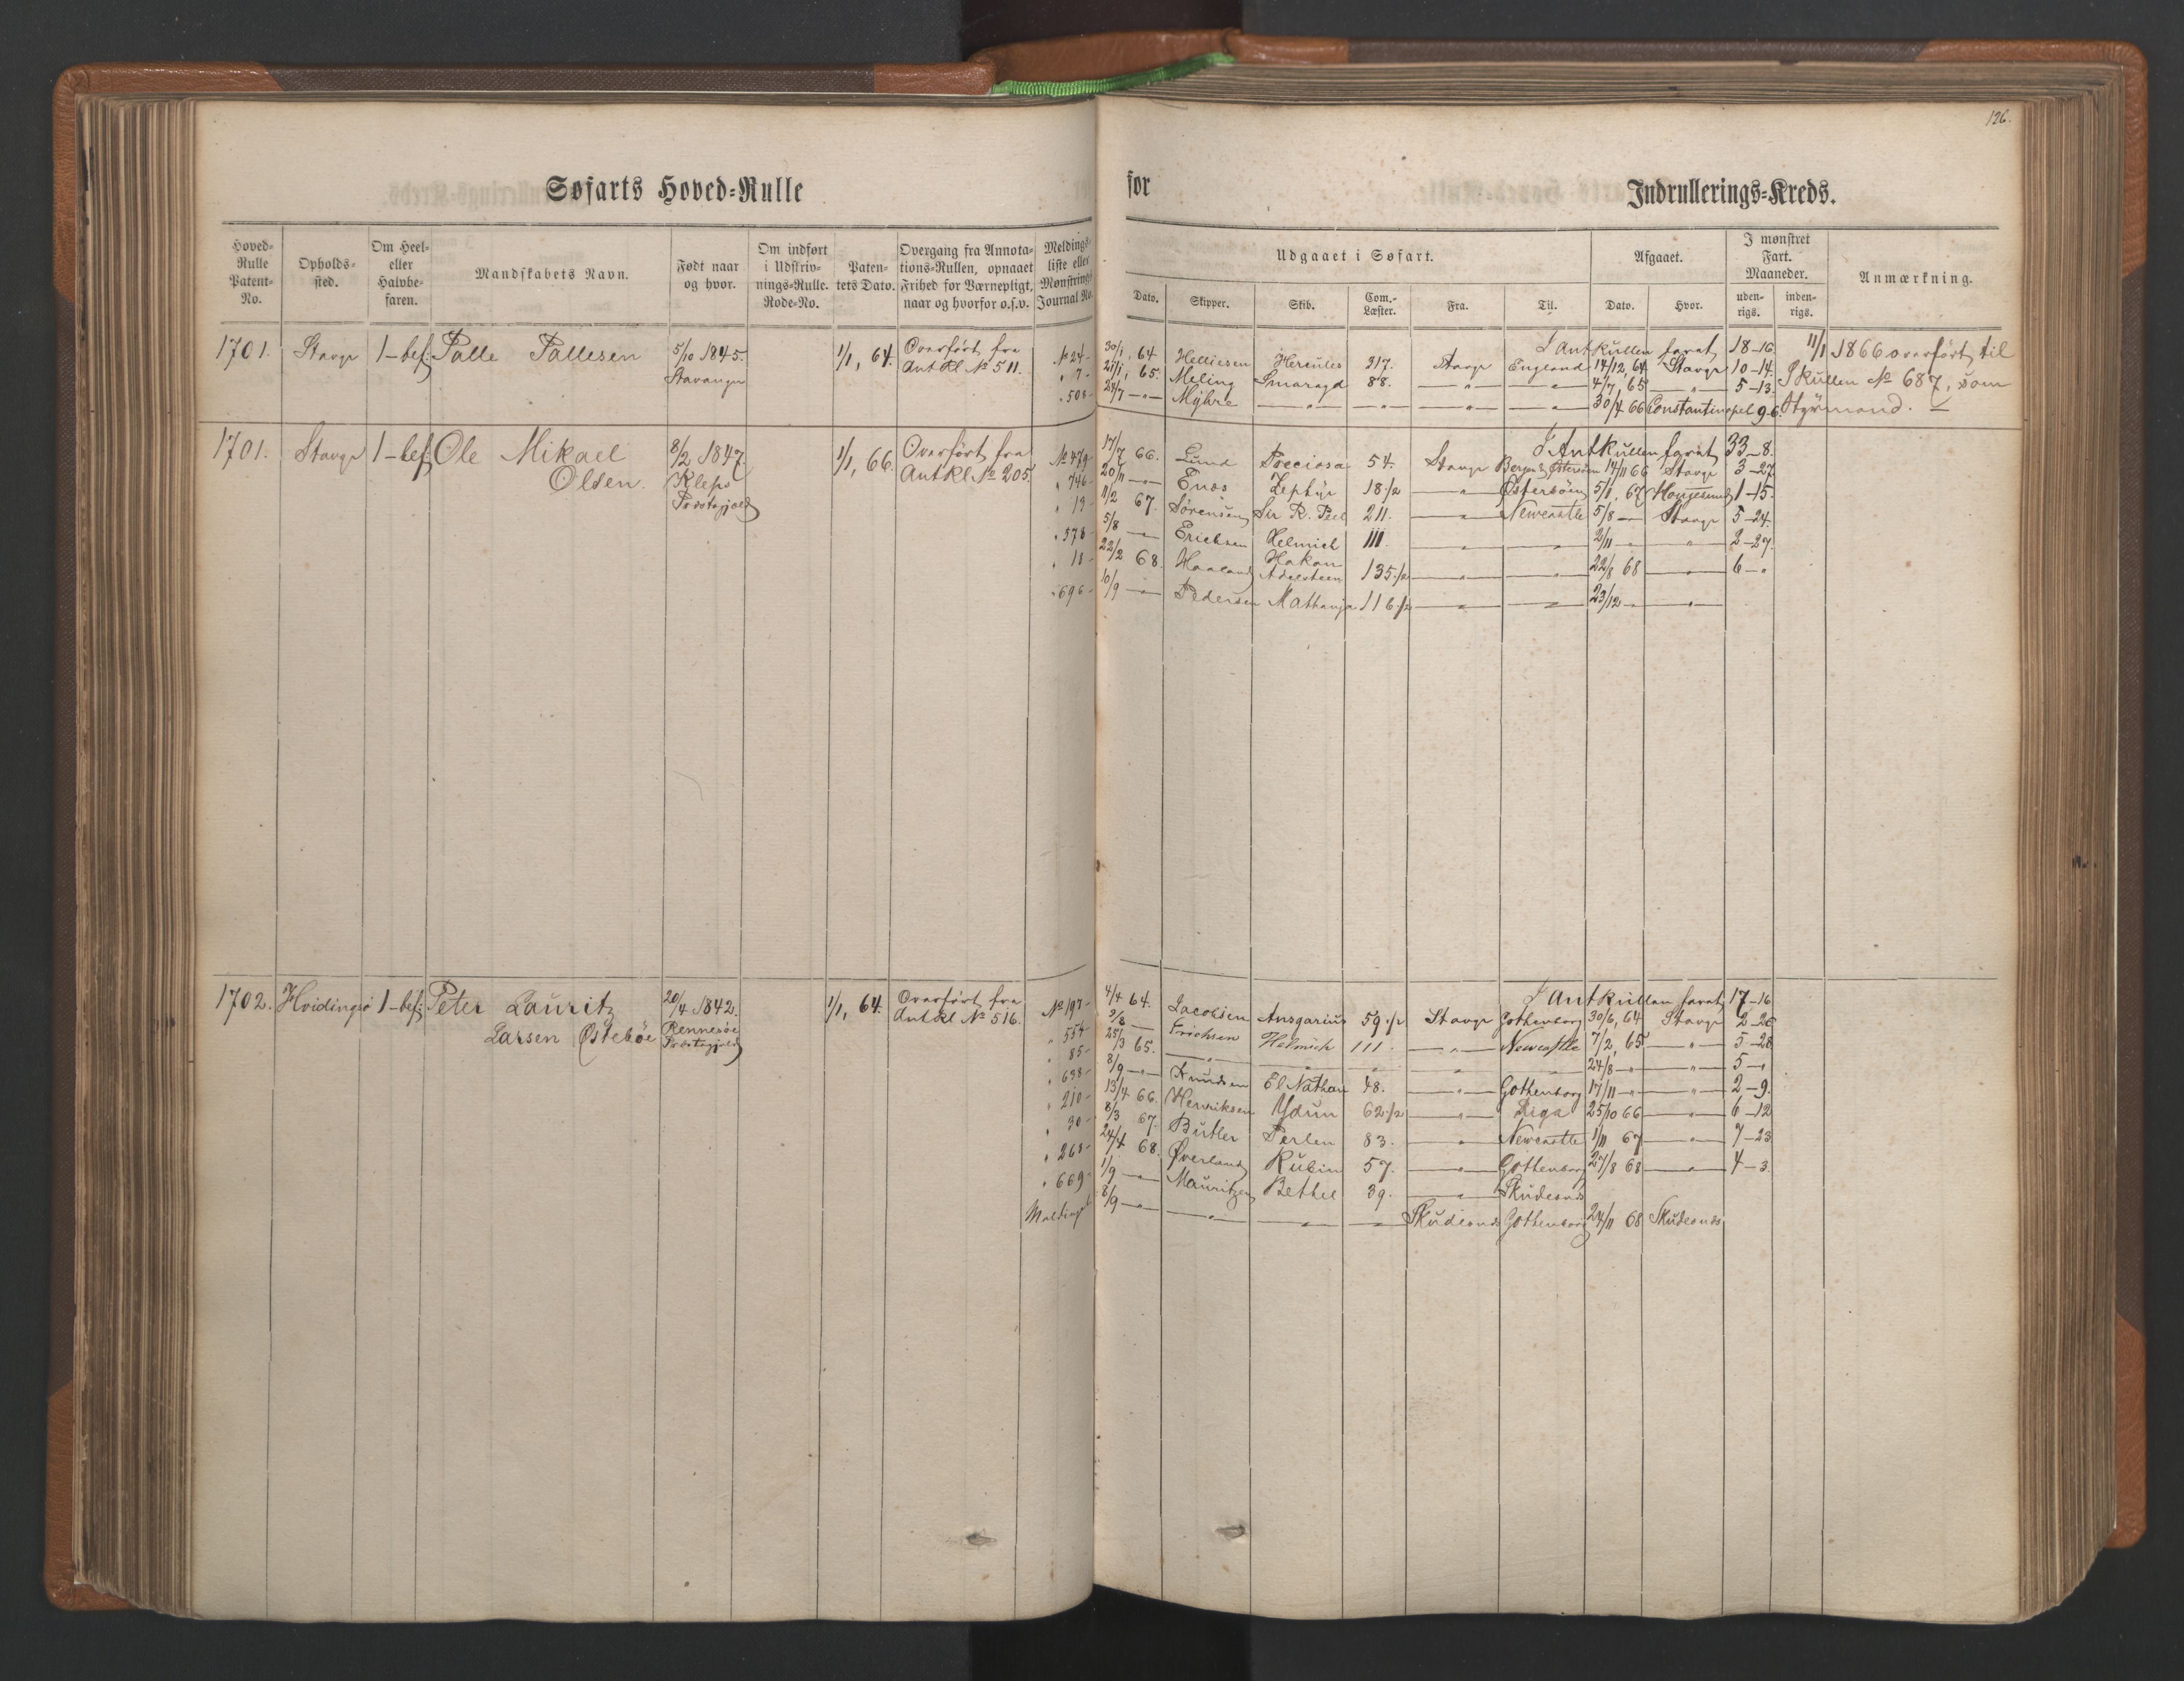 126.
Søfarts Hoved-Rulle for Indrullerings-Kreds.
Hoved-Rulle Patent-No.
Opholds-sted.
Om Heel- eller Halvbe-faren.
Mandskabets Navn.
Født naar og hvor.
Om indført i Udskriv-nings-Rulle. Rode-No.
Paten-tets Dato.
Overgang fra Annota-tions-Rullen, opnaaet Frihed for Værnepligt, naar og hvorfor o.s.v.
Meldings-liste eller Mønstrings-Journal No.
Udgaaet i Søfart.
Dato. Skipper. Skib. Com.-Læster. Fra. Til.
Afgaaet.
Dato. Hvor.
I mønstret Fart. Maaneder.
uden-rigs. inden-rigs.
Anmærkning.
1701. Stavgr 1-bef. Palle Pallesen 5/10 1845. 1/1, 64. Overført fra
Stavanger Ant Rl No 511.
I Antrullen faret 18-16. 11/1 1866 overført til
No 24- 30/1, 64 Helliesen Hercules 217. Stavgr England 14/12, 64 Stavgr 10-14. S Rullen No 687, som
" 7- 27/1, 65. Meling Smaragd 88. -"- -"- 4/7, 65 -"- 5-13. Styrmand. -
" 508- 24/7 -"- Myhre -"- -"- -"- -"- 30/4 66 Constantinopel 9-6.
1701. Stavgr 1-bef. Ole Mikael 8/2 1847 1/1, 66. Overført fra
Olsen. Klepp Ant Rl No 205.
Præstegjeld
I Antrullen faret 33-8.
No 479- 17/7 66. Lund Preciosa 54. Stavgr Bergen & Østersøen 14/11 66 Stavgr 3-27.
" 746- 20/11 -"- Enos Zephyr 18 1/2 -"- Østersøen 5/1, 67 Haugesund 1-15.
" 13- 11/2 67. Sørensen Sir R. Peel 211. -"- Newcastle 5/8 - Stavgr 5-24.
" 578- 5/8 -"- Erichsen Helmich 111. -"- -"- 2/11 -"- -"- 2-27.
" 18- 22/2 68. Haaland Hakon Adelsteen 135 1/2 -"- -"- 22/8 68 -"- 6-"
" 696- 10/9 -"- Pedersen Mathanja 116 1/2 -"- -"- 23/12 -"- -"-
1702. Hvidingsø 1-bef. Peter Lauritz 20/4 1842. 1/1, 64. Overført fra
Larsen Østebøe Rennesøe Ant Rl No 516.
Præstegjeld
I Antrullen faret 17-16
No 197- 4/4 64. Jacobsen Ansgarius 59 1/2 Stavgr Gothenborg 30/6, 64 Stavgr 2-26
" 554- 2/8 -"- Erichsen Helmich 111. -"- Newcastle 7/2, 65 -"- 5-28
" 85- 25/3 65. -"- -"- -"- -"- -"- 24/8 -"- -"- 5-"
" 638- 8/9 -"- Knudsen El Nathan 48. -"- Gothenborg 17/11 -"- -"- 2-9.
" 210- 13/4 66. Henriksen Ydun 62 1/2 -"- Riga 25/10 66 -"- 6-12
" 30- 8/3 67. Butler Perlen 83. -"- Newcastle 1/11 67 -"- 7-23
" 268- 24/4 68. Øverland Rubin 57. -"- Gothenborg 27/8 68 -"- 4-3.
" 669- 1/9 -"- Mauritzen Bethel 39. -"- Skudesnes
8/9 -"- -"- -"- -"- Skudesnes Gothenborg 24/11 68 Skudesnes